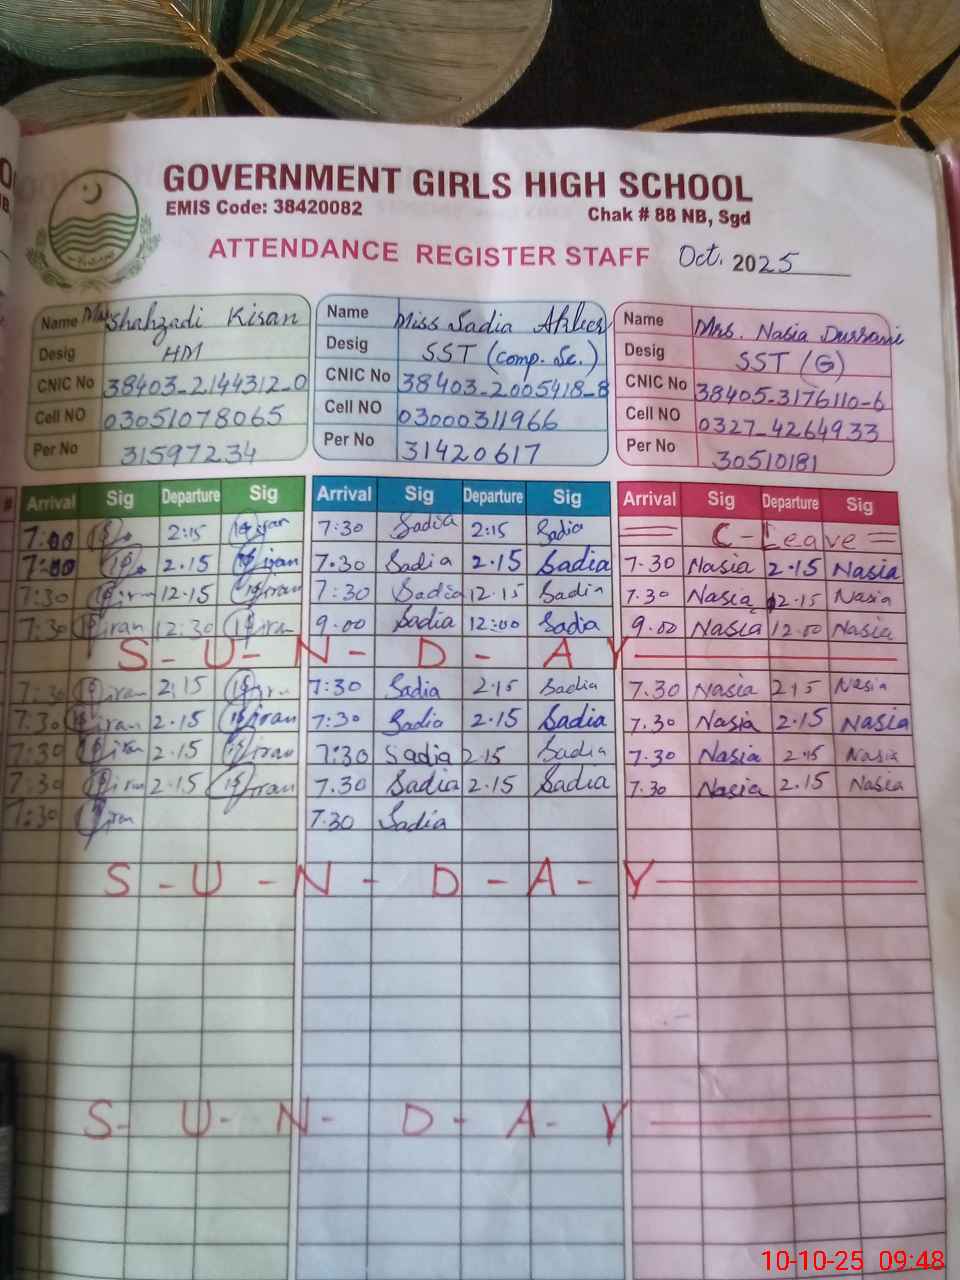 GOVERNMENT GIRLS HIGH SCHOOL
EMIS Code: 38420082 Chak # 88 NB, Sgd
ATTENDANCE REGISTER STAFF Oct. 2025
Name Shahzadi Kiran Name Miss Sadia Name Mrs. Nasia Durrani
Desig HM Desig SST (Comp. Sc.) Desig SST (G)
CNIC No 38403-2144312-0 CNIC No 38403-2005418-8 CNIC No 38405-3176110-6
Cell NO 03051078065 Cell NO 03000311966 Cell NO 0327-4264933
Per No 31597234 Per No 31420617 Per No 30510181
# Arrival Sig Departure Sig Arrival Sig Departure Sig Arrival Sig Departure Sig
7:00 2:15 Kiran 7:30 Sadia 2:15 Sadia C-Leave
7:00 2.15 Kiran 7.30 Sadia 2.15 Sadia 7.30 Nasia 2.15 Nasia
7:30 Kiran 12.15 Kiran 7:30 Sadia 12.15 Sadia 7.30 Nasia 12.15 Nasia
7:30 Kiran 12:30 Kiran 9.00 Sadia 12:00 Sadia 9.00 Nasia 12.00 Nasia
S-U-N-D-AY
7:30 Kiran 2:15 Kiran 7:30 Sadia 2.15 Sadia 7.30 Nasia 2.15 Nasia
7.30 Kiran 2.15 Kiran 7:30 Sadia 2.15 Sadia 7.30 Nasia 2.15 Nasia
7:30 Kiran 2.15 Kiran 7:30 Sadia 2.15 Sadia 7.30 Nasia 2.15 Nasia
7.30 Kiran 2.15 Kiran 7.30 Sadia 2.15 Sadia 7.30 Nasia 2.15 Nasia
7:30 Kiran 7.30 Sadia
S-U-N-D-A-Y
S-U-N-D-A-Y
10-10-25 09:48